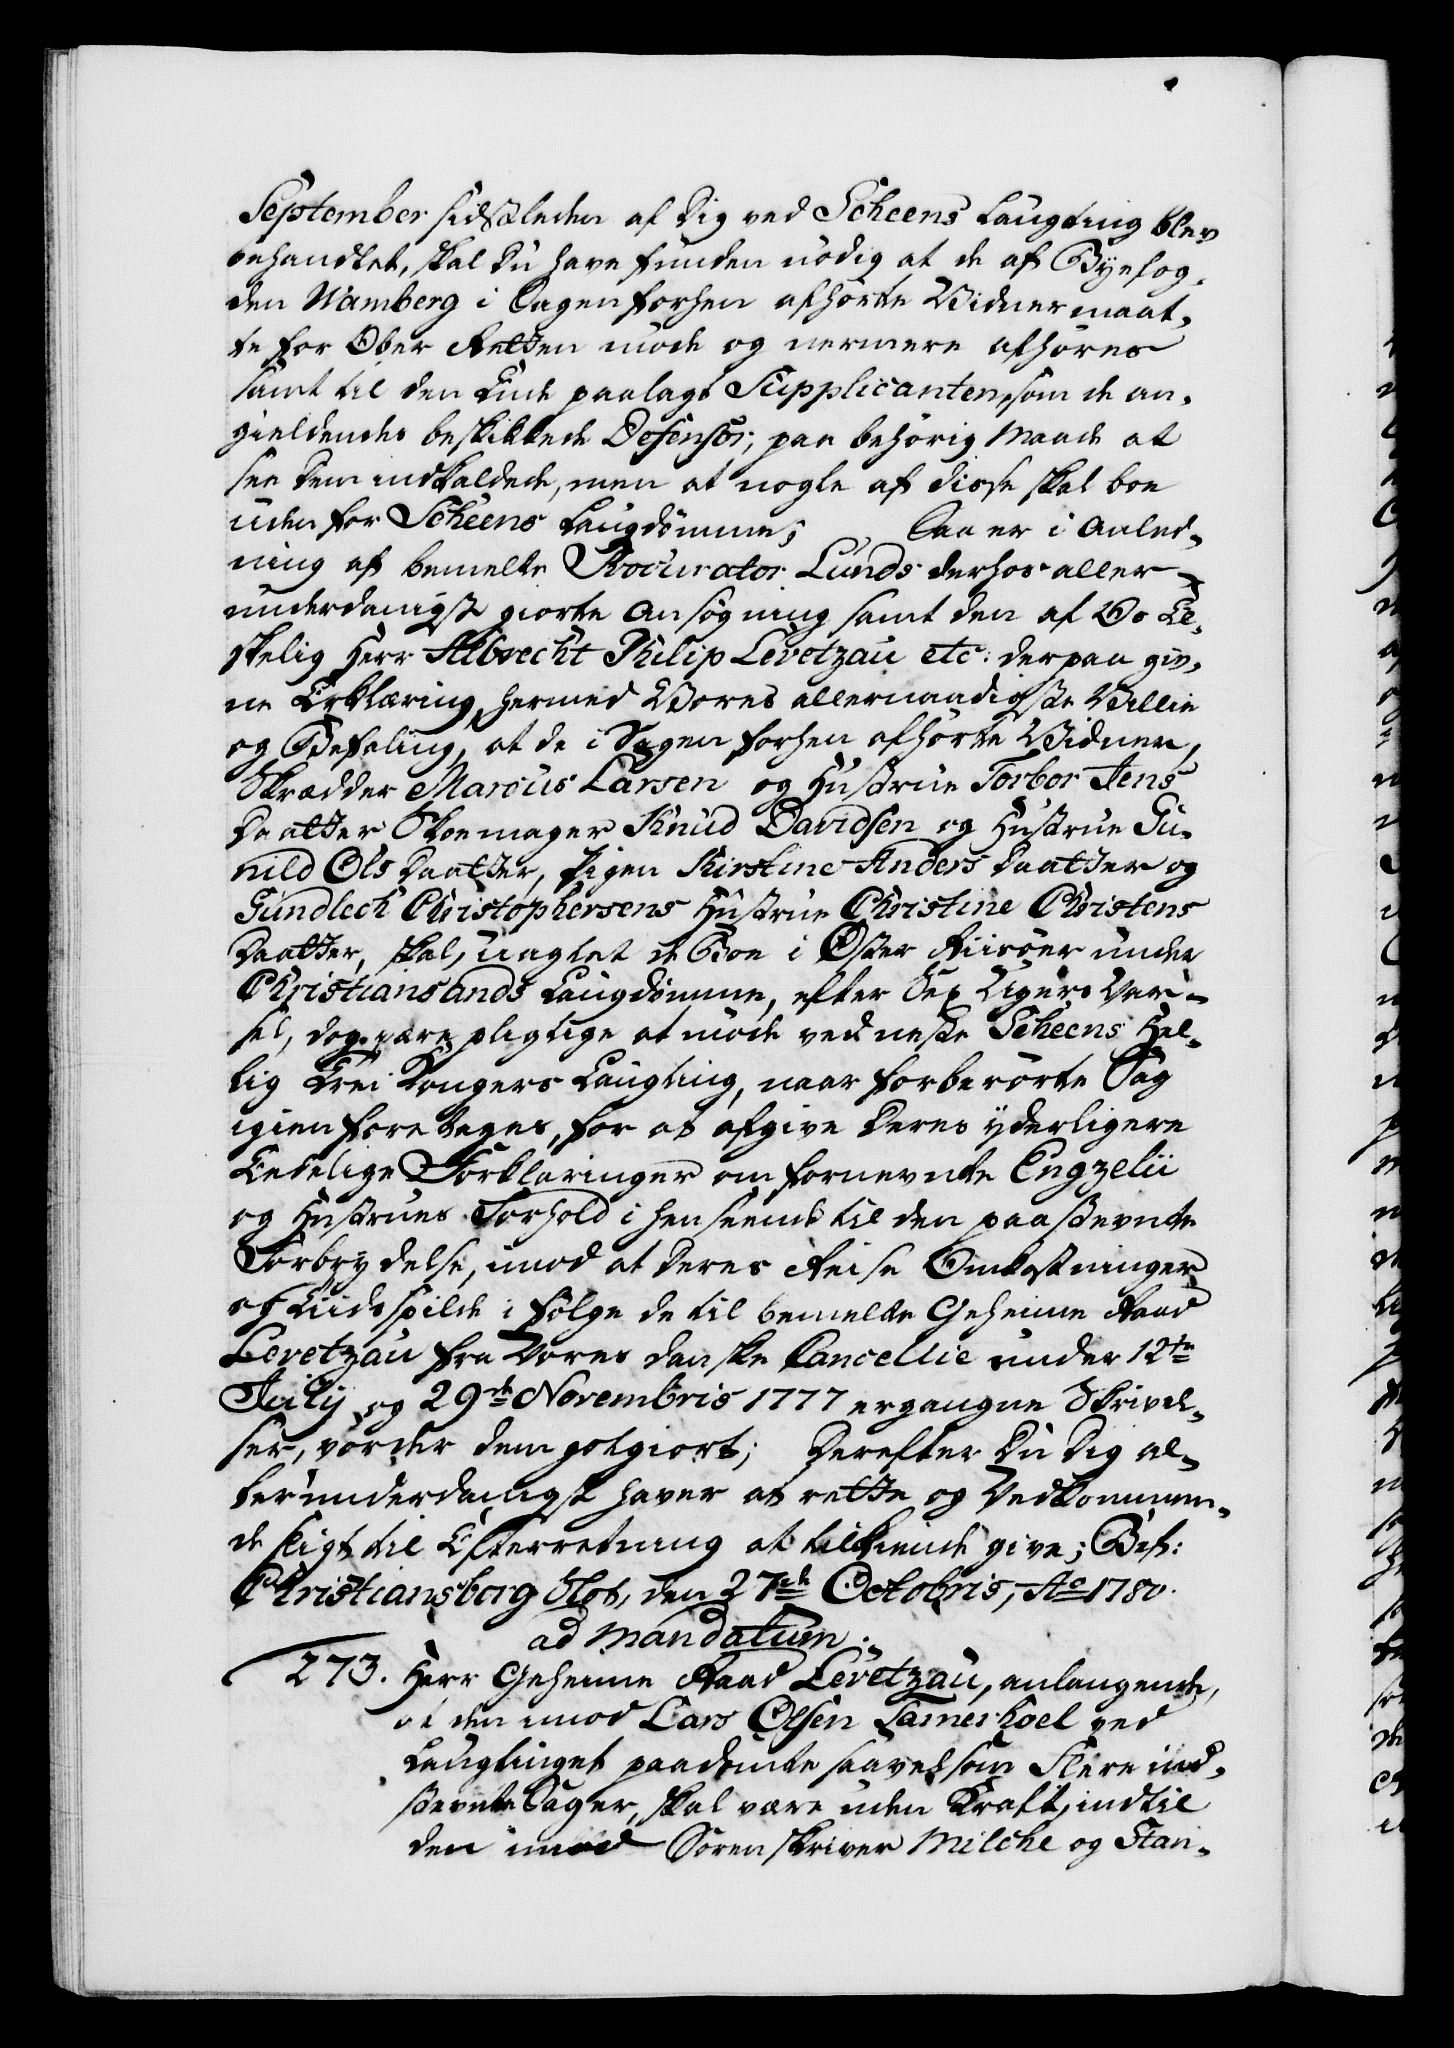 September sidstleden af Dig ved Scheens Laugting blev
behandlet, skal Du have funden nödig at de af Byefog,
den Wamberg i Sagen forhen afhörte Vidner maat,
te for Ober Retten möde og nermere afhöres
samt til den Ende paalagt Supplicanten, som de an,
gieldendes beskikkede Defensor, paa behörig Maade at
see dem indkaldede, men at nogle af disse skal boe
uden for Scheens Laugdömme; Saa er i Anled,
ning af bemelte Procurator Lunds derhos aller,
underdanigst giorte Ansögning samt den af Os El,
skelig Herr Albrecht Philip Levetzau etc: derpaa giv,
ne Erklæring, hermed Vores allernaadigste Villie
og Befaling, at de i Sagen forhen afhörte Vidner,
Skrædder Marcus Larsen og Hustrue Torbor Jens
Daatter Skoemager Knud Davidsen og Hustrue Gu,
nild Ols Daatter, Pigen Kirstine Anders Daatter og
Gundlech Christophersens Hustrue Christine Christens
Daatter, skal, uagtet de Boe i Öster Riisöer under
Christiansands Laugdömme, efter Sex Ugers Var,
sel, dog være pligtige at möde ved neste Scheens Hel,
lig Trei Kongers Laugting, naar forberörte Sag
igien foretages, for at afgive deres yderligere
Eedelige Forklaringer om fornevnte Engzelii
og Hustrues Forhold i henseende til den paastevnte
Forbrydelse, imod at deres Reise Omkostninger
og Tiidsspilde i fölge de til bemelte Geheime Raad
Levetzau fra Vores danske Cancellie under 12te
July og 29de Novembris 1777 ergangne Skrivel,
ser, vorder dem godgiort; Derefter Du Dig al,
lerunderdanigst haver at rette og Vedkommen,
de sligt til Efterretning at tilkiende give; Bef:
Christiansborg Slot, den 27de Octobris, Ao 1780.
ad mandatum.
273. Herr Geheime Raad Levetzau, anlangende,
at den imod Lars Olsen ved
Laugtinget paadömte saavelsom Flere ind,
stevnte Sager, skal være uden Kraft, indtil
den imod Sorenskriver Milche og Stan,